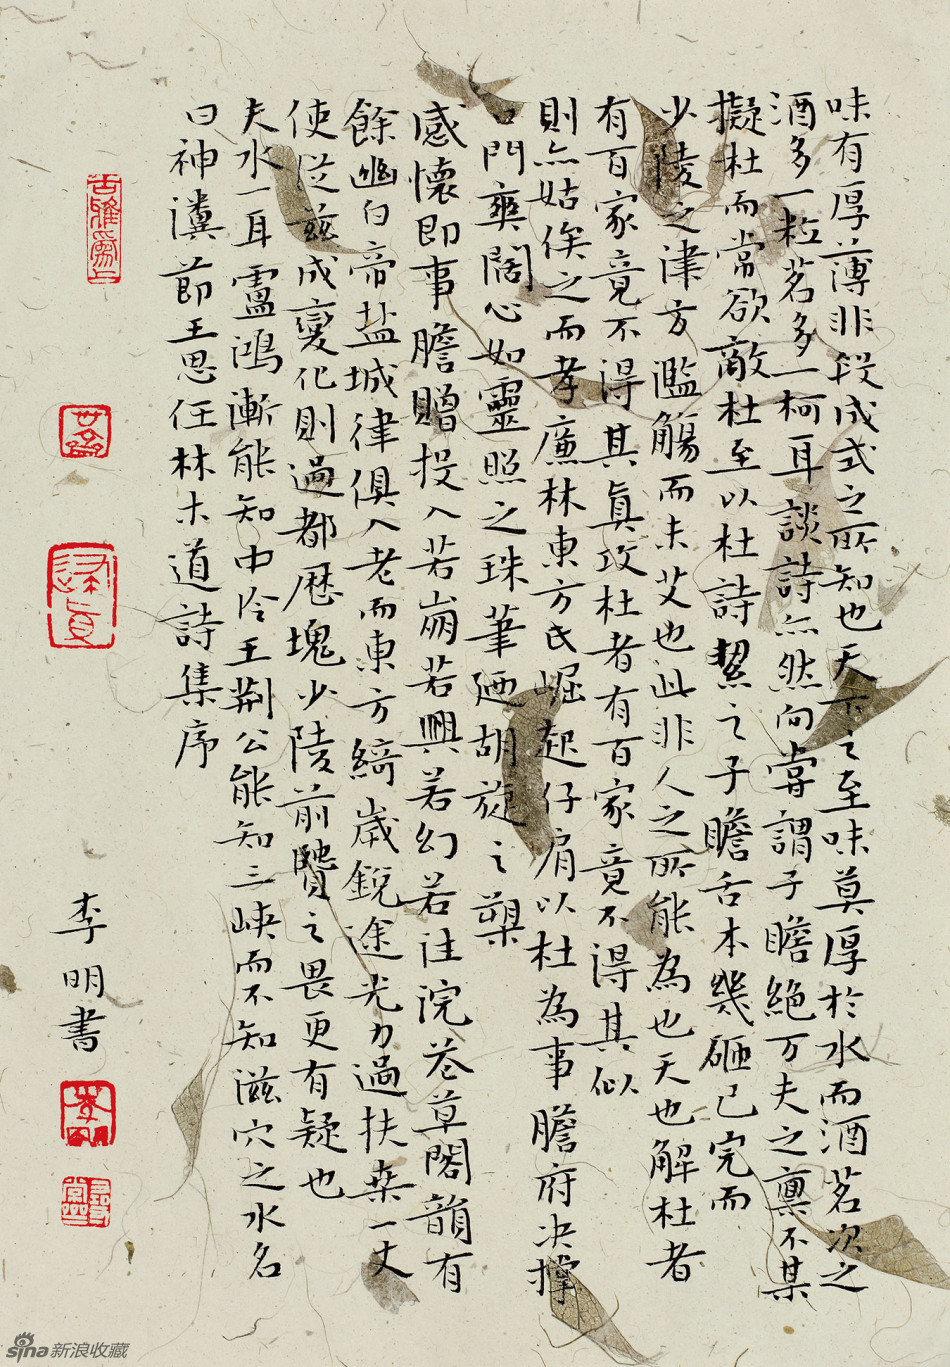 味有厚薄非段成式之所知也天下之至味莫厚於水而酒茗次之
酒多一粒茗多一柯耳談詩亦然向嘗謂子瞻絕万夫之稟不某
擬杜而常欲敵杜至以杜詩絜之子瞻舌本幾砸已完而
少陵之津方濫觴而未艾也此非人之所能為也天也解杜者
有百家竟不得其真攻杜者有百家竟不得其似
則亦姑俟之而孝廉林東方氏崛起仔肩以杜為事膽府决撑
口門爽闊心如靈照之珠筆廼胡旋之槊
感懷即事膽贈投入若崩若興若幻若注浣花草閣韻有
餘幽白帝盐城律俱入老而東方綺歲銳途光力過扶桑一丈
使從茲成變化則過都歷塊少陵前賢之畏更有疑也
夫水一耳盧鴻漸能知中泠王荆公能知三峽而不知滋穴之水名
曰神瀵 節王思任林木道詩集序
李明書
新浪收藏
sina